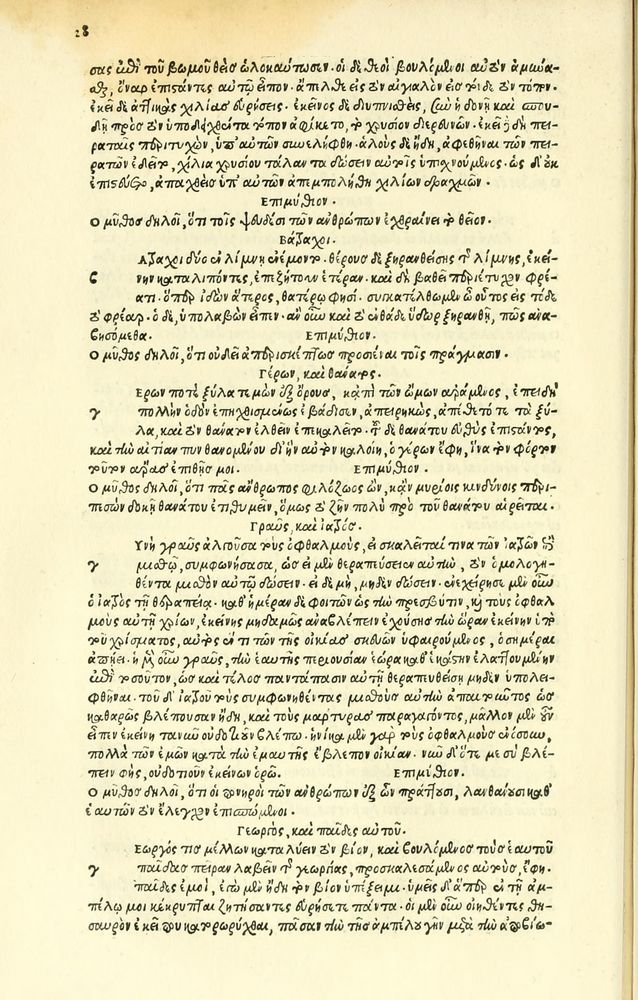 28
σας ἐπὶ τοῦ βωμοῦ θεὶς ὡλοκαύτωσεν. οἱ δὲ θεοὶ βουλόμενοι αὐτὸν ἀμύνα-
σθαι, ὄναρ ἐπιστάντες αὐτῷ εἶπον. ἄπελθε εἰς τὸν αἰγιαλὸν εἰς τόνδε τὸν τόπον.
ἐκεῖ δὲ ἀττικὰς χιλίας εὑρήσεις. ἐκεῖνος δὲ διυπνισθεὶς, σὺν ἡδονῇ καὶ σπου-
δῇ πρὸς τὸν ὑποδειχθέντα τόπον ἀφίκετο, τὸ χρυσίον διερευνῶν. ἐκεῖ δὲ πει-
ραταῖς περιτυχὼν, ὑπ' αὐτῶν συνελήφθη. ἁλοὺς δὲ ἤδη, ἀφεθῆναι τῶν πει-
ρατῶν ἐδεῖτο, χίλια χρυσίου τάλαντα δώσειν αὐτοῖς ὑπισχνούμενος. ὡς δ' οὐκ
ἐπιστεύετο, ἀπαχθεὶς ὑπ' αὐτῶν ἀπεμπολήθη χιλίων δραχμῶν.
Ἐπιμύθιον.
Ο μῦθος δηλοῖ, ὅτι τοῖς ψευδέσι τῶν ἀνθρώπων ἐχθραίνει τὸ θεῖον.
Βάτραχοι.
Ατραχοι δύο ἐν λίμνῃ ἐνέμοντο. θέρους δὲ ξηρανθείσης τῆς λίμνης, ἐκεί-
β νην καταλιπόντες, ἐπεζήτουν ἑτέραν. καὶ δὴ βαθεῖ περιέτυχον φρέ-
ατι. ὅπερ ἰδὼν ἅτερος, θατέρῳ φησί. συγκατέλθωμεν ὦ οὗτος εἰς τόδε
τὸ φρέαρ. ὁ δὲ, ὑπολαβὼν εἶπεν. ἂν οὖν καὶ τὸ ἐνθάδε ὕδωρ ξηρανθῇ, πῶς ἀνα-
βησόμεθα. Ἐπιμύθιον.
Ο μῦθος δηλοῖ, ὅτι οὐ δεῖ ἀπερισκέπτως προσιέναι τοῖς πράγμασιν.
Γέρων, καὶ θάνατος.
Ερων ποτὲ ξύλα τεμὼν ἐξ ὄρους, κἀπὶ τῶν ὤμων ἀράμενος, ἐπειδὴ
γ πολλὴν ὁδὸν ἐπηχθισμένος ἐβάδισεν, ἀπειρηκὼς, ἀπέθετό τε τὰ ξύ-
λα, καὶ τὸν θάνατον ἐλθεῖν ἐπεκαλεῖτο. τοῦ δὲ θανάτου εὐθὺς ἐπιστάντος,
καὶ τὴν αἰτίαν πυνθανομένου δι' ἣν αὐτὸν καλοίη, ὁ γέρων ἔφη, ἵνα τὸν φόρτον
τοῦτον ἄρας ἐπιθῇς μοι. Ἐπιμύθιον.
Ο μῦθος δηλοῖ, ὅτι πᾶς ἄνθρωπος φιλόζωος ὢν, κἂν μυρίοις κινδύνοις περι-
πεσὼν δοκῇ θανάτου ἐπιθυμεῖν, ὅμως τὸ ζῆν πολὺ πρὸ τοῦ θανάτου αἱρεῖται.
Γραῦς, καὶ ἰατρός.
Υνὴ γραῦς ἀλγοῦσα τοὺς ὀφθαλμοὺς, εἰσκαλεῖταί τινα τῶν ἰατρῶν ἐπὶ
γ μισθῷ, συμφωνήσασα, ὡς εἰ μὲν θεραπεύσειεν αὐτὴν, τὸν ὁμολογη-
θέντα μισθὸν αὐτῷ δώσειν. εἰ δὲ μὴ, μηδὲν δώσειν. ἐνεχείρησε μὲν οὖν
ὁ ἰατρὸς τῇ θεραπείᾳ. καθ' ἡμέραν δὲ φοιτῶν ὡς τὴν πρεσβῦτιν, καὶ τοὺς ὀφθαλ
μοὺς αὐτῇ χρίων, ἐκείνης μηδαμῶς ἀναβλέπειν ἐχούσης τὴν ὥραν ἐκείνην ὑπὸ
τοῦ χρίσματος, αὐτὸς ἕν τι τῶν τῆς οἰκίας σκευῶν ὑφαιρούμενος, ὁσημέραι
ἀπῄει. ἡ μὲν οὖν γραῦς, τὴν ἑαυτῆς περιουσίαν ἑώρα καθ' ἑκάστην ἐλαττουμένην
ἐπὶ τοσοῦτον, ὡς καὶ τέλος παντάπασιν αὐτῇ θεραπευθείσῃ μηδὲν ὑπολει-
φθῆναι. τοῦ δ' ἰατροῦ τοὺς συμφωνηθέντας μισθοὺς αὐτὴν ἀπαιτοῦντος ὡς
καθαρῶς βλέπουσαν ἤδη, καὶ τοὺς μάρτυρας παραγαγόντος, μᾶλλον μὲν οὖν
εἶπεν ἐκείνη τανῦν οὐδοτιοῦν βλέπω. ἡνίκα μὲν γὰρ τοὺς ὀφθαλμοὺς ἐνόσουν,
πολλὰ τῶν ἐμῶν κατὰ τὴν ἐμαυτῆς ἔβλεπον οἰκίαν. νῦν δ' ὅτε με σὺ βλέ-
πειν φῂς, οὐδοτιοῦν ἐκείνων ὁρῶ. Ἐπιμύθιον.
Ο μῦθος δηλοῖ, ὅτι οἱ πονηροὶ τῶν ἀνθρώπων ἐξ ὧν πράττουσι, λανθάνουσι καθ'
ἑαυτῶν τὸν ἔλεγχον ἐπισπώμενοι.
Γεωργὸς, καὶ παῖδες αὐτοῦ.
Εωργός τις μέλλων καταλύειν τὸν βίον, καὶ βουλόμενος τοὺς ἑαυτοῦ
γ παῖδας πεῖραν λαβεῖν τῆς γεωργίας, προσκαλεσάμενος αὐτοὺς, ἔφη.
παῖδες ἐμοὶ, ἐγὼ μὲν ἤδη τὸν βίον ὑπέξειμι. ὑμεῖς δ' ἅπερ ἐν τῇ ἀμ-
πέλῳ μοι κέκρυπται ζητήσαντες εὑρήσετε πάντα. οἱ μὲν οὖν οἰηθέντες θη-
σαυρὸν ἐκεῖ που κατορωρύχθαι, πᾶσαν τὴν τῆς ἀμπέλου γῆν μετὰ τὴν ἀποβίω-